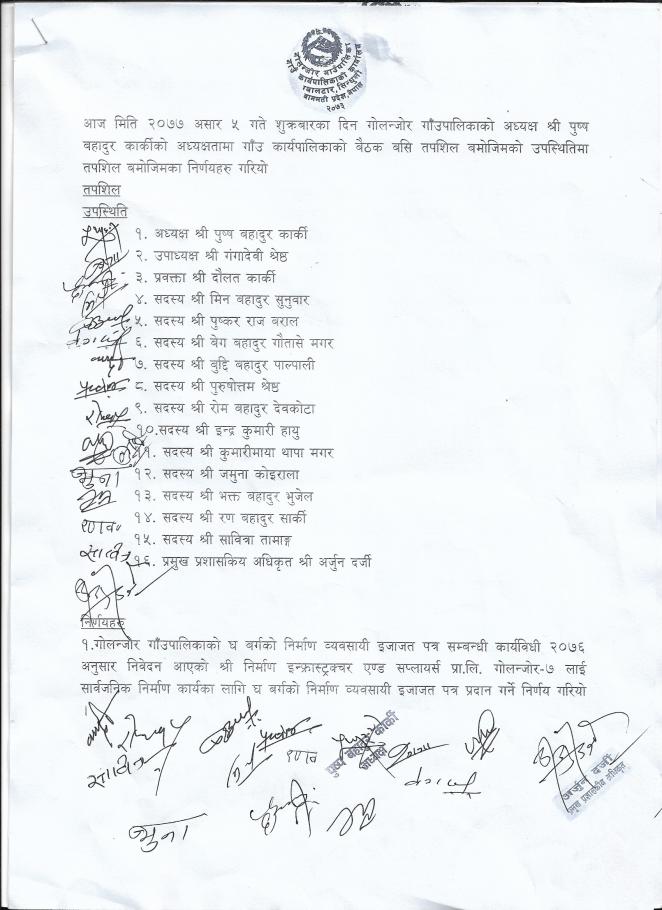 गोलन्जोर गाउँपालिका
गाउँ कार्यपालिकाको कार्यालय
ग्वालटार, सिन्धुली
बागमती प्रदेश, नेपाल
२०७३
आज मिति २०७७ असार ५ गते शुक्रबारका दिन गोलन्जोर गाँउपालिकाको अध्यक्ष श्री पुष्प
बहादुर कार्कीको अध्यक्षतामा गाँउ कार्यपालिकाको बैठक बसि तपशिल बमोजिमको उपस्थितिमा
तपशिल बमोजिमका निर्णयहरु गरियो
तपशिल
उपस्थिति
१. अध्यक्ष श्री पुष्प बहादुर कार्की
२. उपाध्यक्ष श्री गंगादेवी श्रेष्ठ
३. प्रवक्ता श्री दौलत कार्की
४. सदस्य श्री मिन बहादुर सुनुवार
५. सदस्य श्री पुष्कर राज बराल
६. सदस्य श्री बेग बहादुर गौतासे मगर
७. सदस्य श्री बुद्दि बहादुर पाल्पाली
८. सदस्य श्री पुरुषोत्तम श्रेष्ठ
९. सदस्य श्री रोम बहादुर देवकोटा
१०.सदस्य श्री इन्द्र कुमारी हायु
११. सदस्य श्री कुमारीमाया थापा मगर
१२. सदस्य श्री जमुना कोइराला
१३. सदस्य श्री भक्त बहादुर भुजेल
१४. सदस्य श्री रण बहादुर सार्की
१५. सदस्य श्री सावित्रा तामाङ्ग
१६. प्रमुख प्रशासकिय अधिकृत श्री अर्जुन दर्जी
निर्णयहरु
१.गोलन्जोर गाँउपालिकाको घ बर्गको निर्माण व्यवसायी इजाजत पत्र सम्बन्धी कार्यविधी २०७६
अनुसार निवेदन आएको श्री निर्माण इन्फ्रास्ट्रक्चर एण्ड सप्लायर्स प्रा.लि. गोलन्जोर-७ लाई
सार्वजनिक निर्माण कार्यका लागि घ बर्गको निर्माण व्यवसायी इजाजत पत्र प्रदान गर्ने निर्णय गरियो
पुष्प बहादुर कार्की
अध्यक्ष
अर्जुन दर्जी
प्रमुख प्रशासकीय अधिकृत